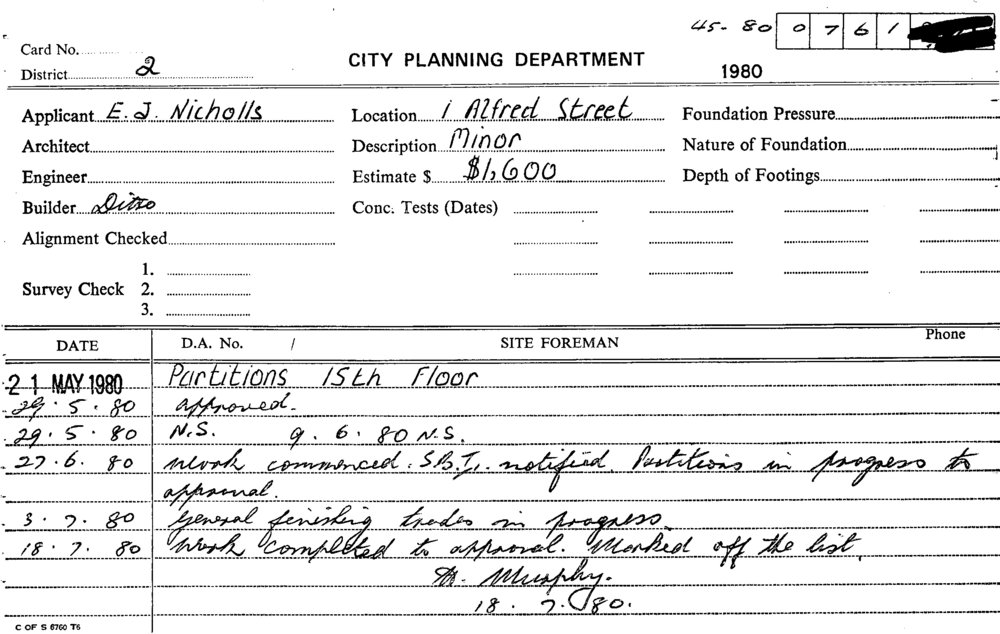 45-80 0 7 6 1
Card No.
District 2
CITY PLANNING DEPARTMENT
1980
Applicant E. J. Nicholls
Location 1 Alfred Street
Foundation Pressure
Architect
Description Minor
Nature of Foundation
Engineer
Estimate $ $1,600
Depth of Footings
Builder Ditto
Conc. Tests (Dates)
Alignment Checked
1.
Survey Check 2.
3.
DATE D.A. No. / SITE FOREMAN Phone
21 MAY 1980 Partitions 15th Floor
29.5.80 approved.
29.5.80 N.S. 9.6.80 N.S.
27.6.80 Work commenced. S.B.I. notified Partitions in progress to
approval.
3.7.80 General finishing trades in progress.
18.7.80 Work completed to approval. Marked off the list.
Murphy.
18.7.80.
C OF S 6760 T6